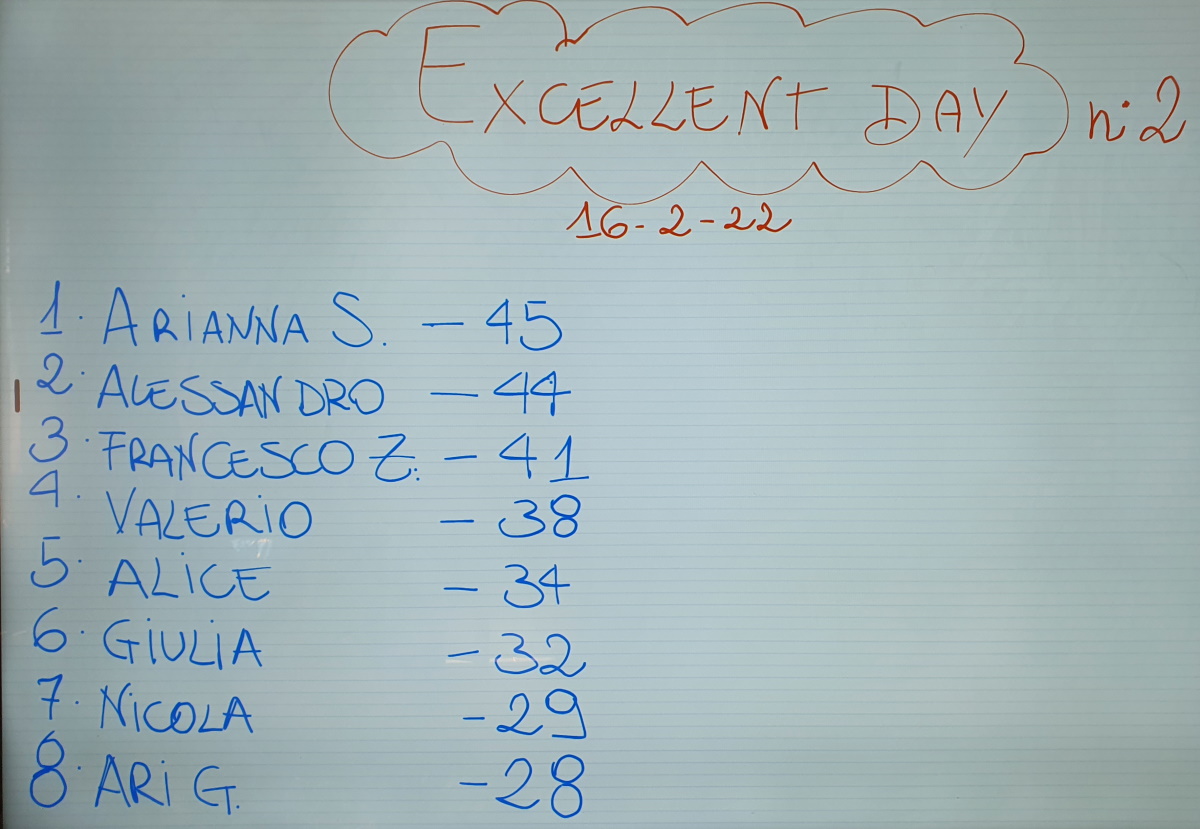 EXCELLENT DAY n·2
16-2-22
1. ARIANNA S. - 45
2. ALESSANDRO - 44
3. FRANCESCO Z. - 41
4. VALERIO - 38
5. ALICE - 34
6. GIULIA - 32
7. NICOLA - 29
8. ARI G. - 28